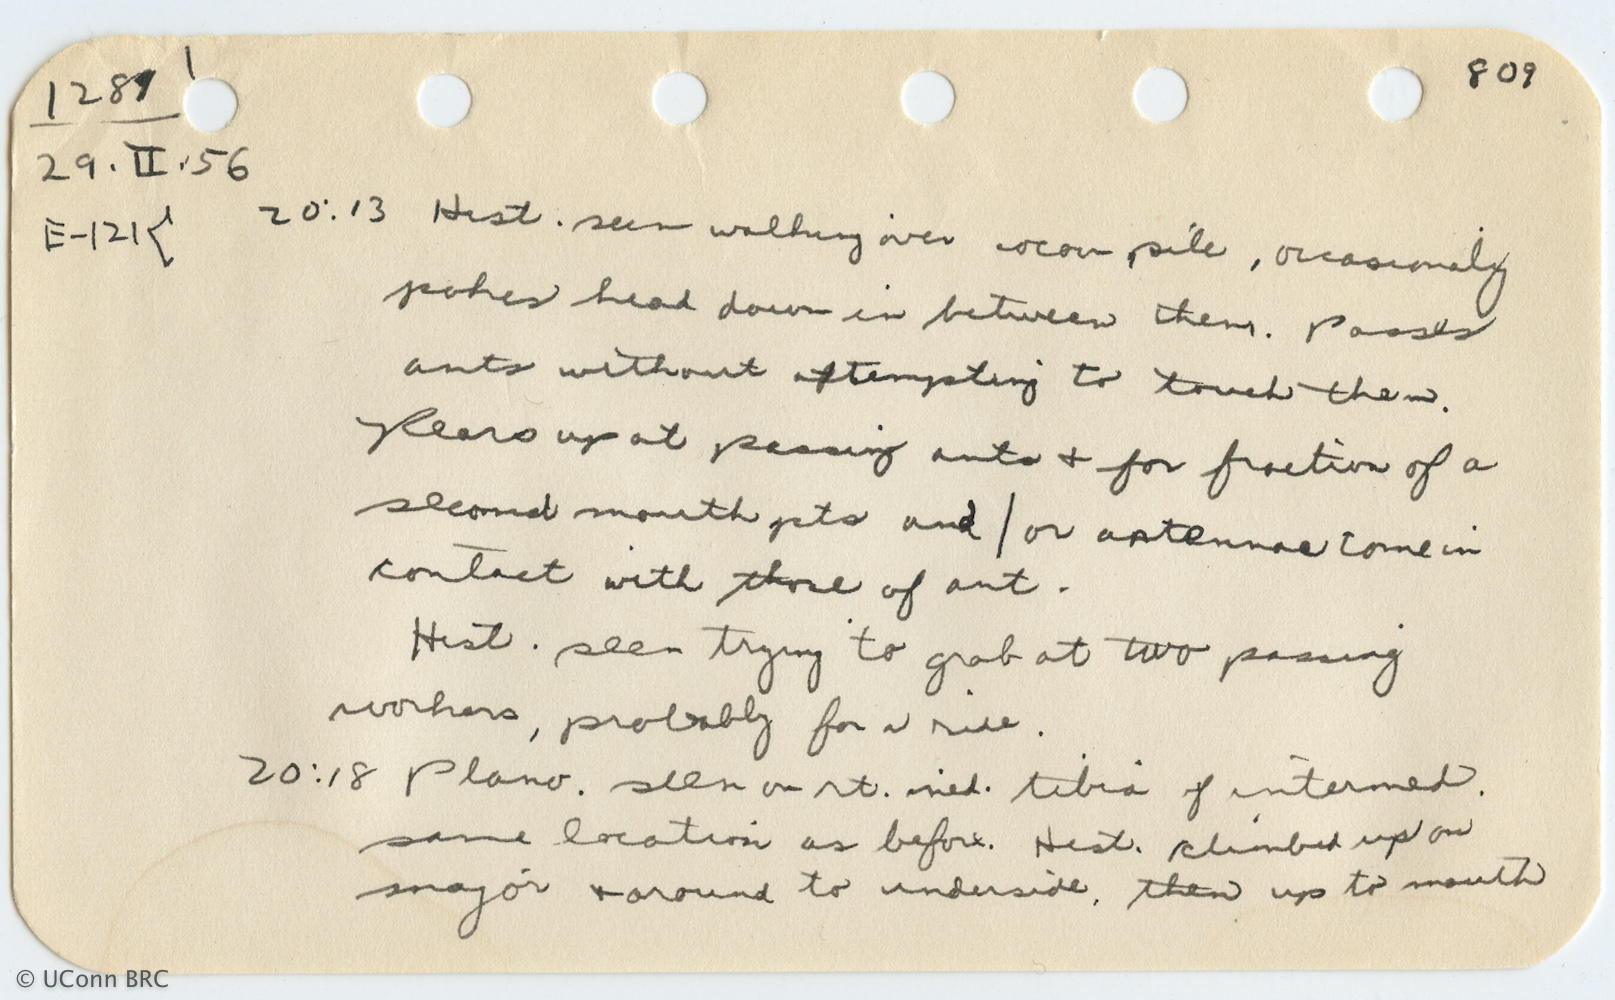 1281
809
29.II.56
E-121{
20:13 Hist. seen walking over cocoon pile, occasionaly
pokes head down in between them. Passes
ants without attempting to touch them.
Rears up at passing ants + for fraction of a
second mouth pts and/or antennae come in
contact with those of ant.
Hist. seen trying to grab at two passing
workers, probably for a ride.
20:18 Plano. seen on rt. tibia of intermed.
same location as before. Hist. climbed up on
major + around to underside, then up to mouth
© UConn BRC